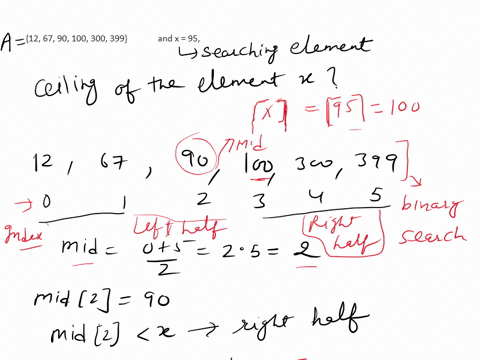 A={12, 67, 90, 100, 300, 399} and x = 95,
↳searching element
Ceiling of the element x ?
⌈x⌉ = ⌈95⌉ = 100
Mid
12 , 67 , 90 , 100, 300, 399]
→ 0 1 2 3 4 5
Index
Left half
Right half
binary search
mid = 0+5/2 = 2.5 = 2
mid [2] = 90
mid [2] < x → right half